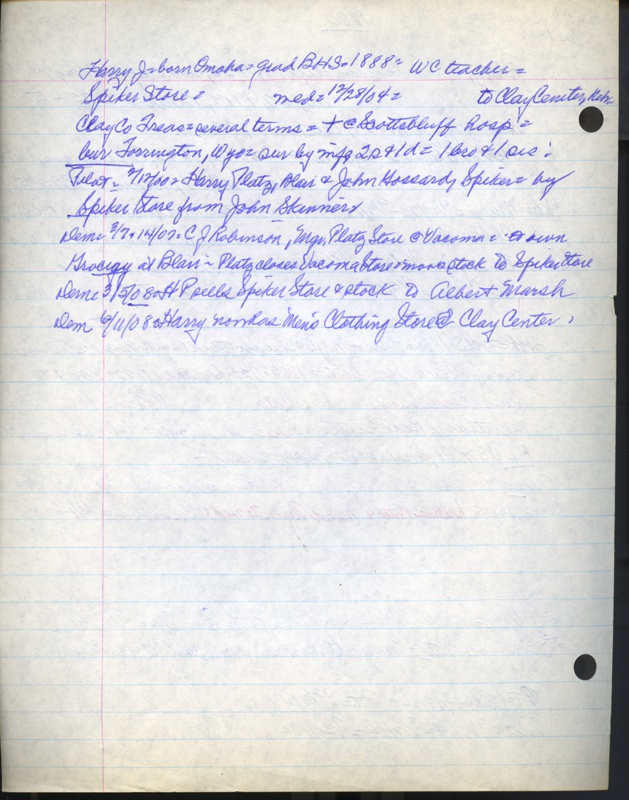 Harry J = born Omaha = grad BHS = 1888 = WC teacher =
Spiker Store = med = 12/28/04 = to Clay Center, Neb
Clay Co Treas = several terms = + @ Scottsbluff hosp =
bur Torrington, Wyo = sur by mfg 2s & 1d = 1 bro & 1 sis :
Pilot = /12/00 = Harry Platz, Blair & John Hossard, Spiker = by
Spiker Store from John Skinner
Dem = 3/7 + 14/07 = C J Robinson, Mgr, Platz Store @ Vacoma = own
Grocery at Blair - Platz closes Vacoma Store & moves stock to Spiker Store
Dem = 3/5/08 = H P sells Spiker Store & stock to Albert Marsh
Dem 6/11/08 = Harry now has Men's Clothing Store @ Clay Center